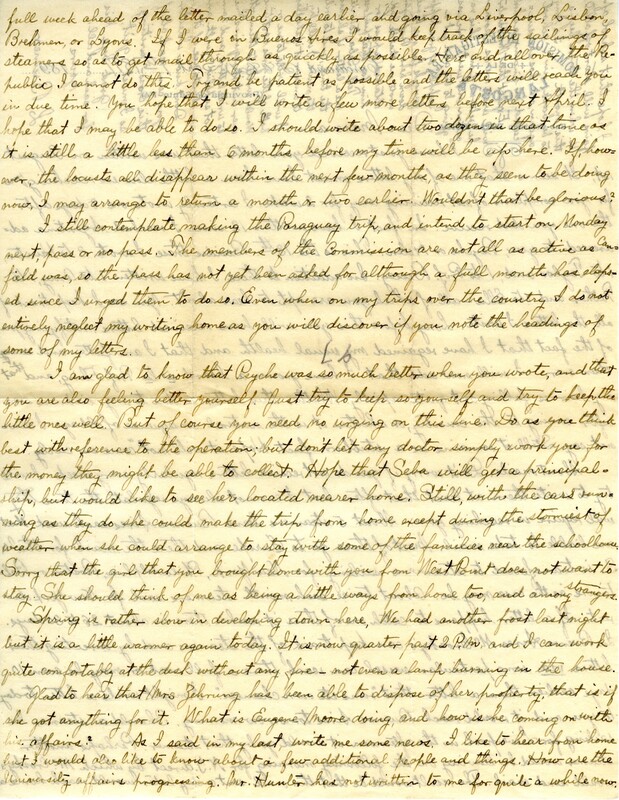 full week ahead of the letter mailed a day earlier and going via Liverpool, Lisbon,
Brehmen, or Lyons. If I were in Buenos Aires I would keep track of the sailings of
steamers so as to get mail through as quickly as possible. Here and all over the Re-
public I cannot do this. Try and be patient as possible and the letters will reach you
in due time. You hope that I will write a few more letters before next April. I
hope that I may be able to do so. I should write about two dozen in that time as
it is still a little less than 6 months before my time will be up here. If, how-
ever, the locusts all disappear within the next few months, as they seem to be doing
now, I may arrange to return a month or two earlier. Wouldn't that be glorious?
I still contemplate making the Paraguay trip, and intend to start on Monday
next, pass or no pass. The members of the Commission are not all as active as Can-
field was, so the pass has not yet been asked for although a full months has elaps-
ed since I urged them to do so. Even when on my trips over the country I do not
entirely neglect my writing home as you will discover if you note the headings of
some of my letters.
I am glad to know that Psyche was so much better when you wrote, and that
you are also feeling better yourself. Just try to keep so yourself and try to keep the
little ones well. But of course you need no urging on this line. Do as you think
best with reference to the operation, but don't let any doctor simply work you for
the money they might be able to collect. Hope that Seba will get a principal-
ship, but would like to see her located nearer home. Still, with the cars run-
ning as they do she could make the trip from home except during the stormiest of
weather when she could arrange to stay with some of the families near the schoolhouse.
Sorry that the girl that you brought home with you from West Point does not want to
stay. She should think of me as being a little ways from home too, and among strangers.
Spring is rather slow in developing down here. We had another frost last night
but it is a little warmer again today. It is now quarter past 2 P.M. and I can work
quite comfortably at the desk without any fire – not even a lamp burning in the house.
Glad to hear that Mrs. Zehring has been able to dispose of her property, that is if
she got anything for it. What is Eugene Moore doing and how is he coming on with
his affairs? As I said in my last, write me some news. I like to hear from home
but I would also like to know about a few additional people and things. How are the
University affairs progressing. Mr. Hunter has not written to me for quite a while now.